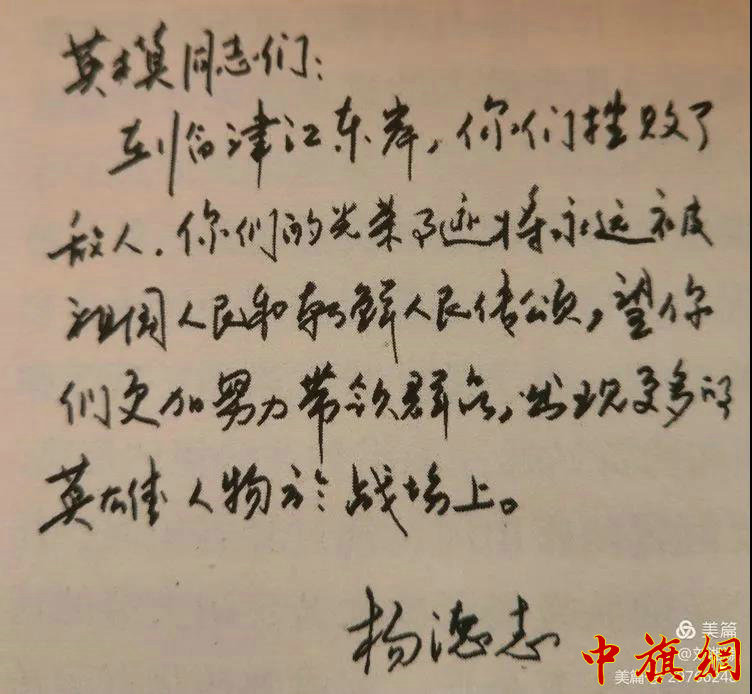 英模同志们：
在临津江东岸，你们挫败了
敌人。你们的光荣事迹将永远被
祖国人民和朝鲜人民传颂，望你
们更加努力带领群众，出现更多的
英雄人物于战场上。
杨德志
美篇
中旗網
美篇